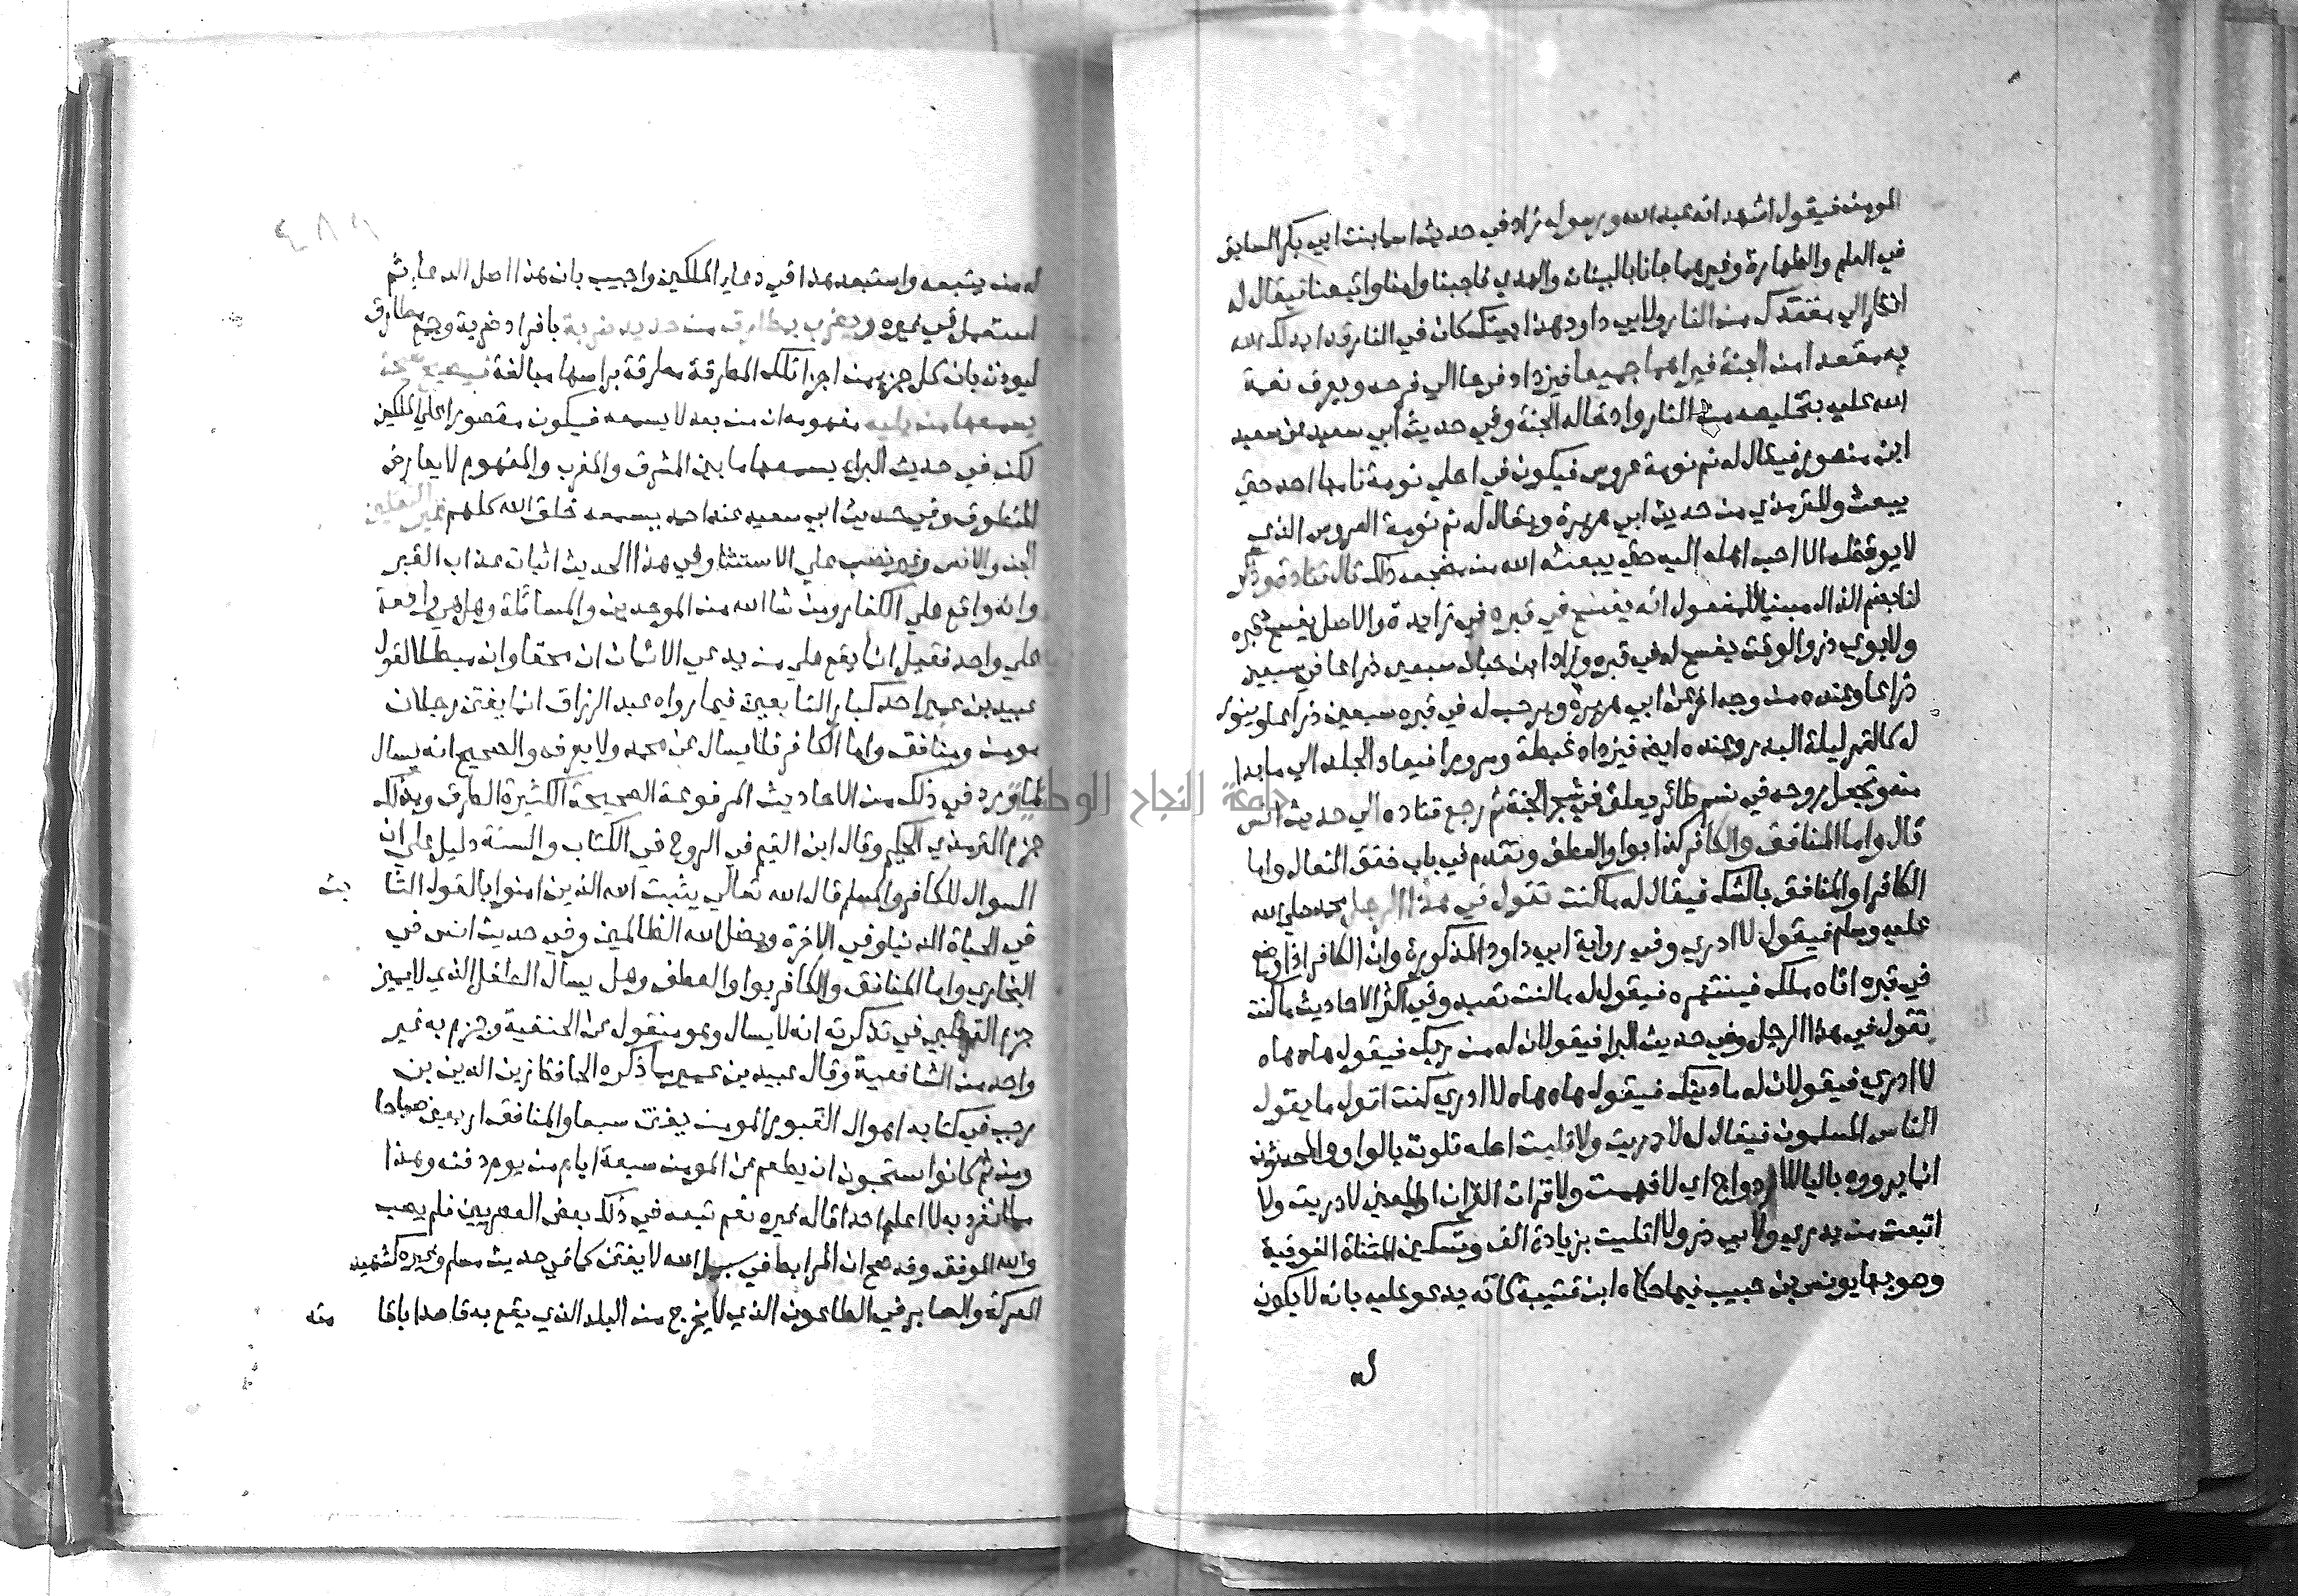 المومن فيقول اشهد انه عبد الله ورسوله زاد في حديث اسما بنت ابي بكر السابق
في العلم والطهارة وغيرهما جانا بالبينات والهدي فاجبنا وامنا واتبعنا فيقال له
انظر الي مقعدك من النار ولابي داود هذا بيتك كان في النار قد ابدلك الله
به مقعدا من الجنة فيراهما جميعا فيزداد فرحا الي فرحه ويعرف نعمة
الله عليه بتخليصه من النار وادخاله الجنة وفي حديث ابي سعيد عن سعيد
ابن منصور فيقال له نم نومة عروس فيكون في احلي نومة نامها احد حتي
يبعث وللترمذي من حديث ابي هريرة ويقال له نم نومة العروس الذي
لا يوقظه الا احب اهله اليه حتي يبعثه الله من مضجعه ذلك قال قتادة وذكر
لنا بضم الذال مبنيا للمفعول انه يفسح في قبره في زايدة والاصل يفسح قبره
ولابوي ذر والوقت يفسح له في قبره وزاد ابن حبان سبعين ذراعا في سبعين
ذراعا وعنده من وجه اخر عن ابي هريرة ويرحب له في قبره سبعين ذراعا وينور
له كالقمر ليلة البدر وعنده ايضا فيزداد غبطة وسرورا فيعاد الجلد الي ما بدا
منه وتجعل روحه في نسم طائر يعلق في شجر الجنة ثم رجع قتاده الي حديث انس
قال واما المنافق والكافر كذا بواو العطف وتقدم في باب خفق النعال واما
الكافر او المنافق بالشك فيقال له ما كنت تقول في هذا الرجل محمد صلي الله
عليه وسلم فيقول لا ادري وفي رواية ابي داود المذكورة وان الكافر اذا وضع
في قبره اتاه ملك فينتهره فيقول له ما كنت تعبد وفي اكثر الاحاديث ما كنت
تقول في هذا الرجل وفي حديث البرا فيقولان له من ربك فيقول هاه هاه
لا ادري فيقولان له ما دينك فيقول هاه هاه لا ادري كنت اقول ما يقول
الناس المسلمون فيقال له لا دريت ولا تليت اصله تلوت بالواو والمحدثون
انما يروونه باليا للازدواج اي لا فهمت ولا قرات القران او المعني لا دريت ولا
اتبعت من يدري ولابي ذر ولا اتليت بزيادة الف وتسكين المثناة الفوقية
وصوبها يونس بن حبيب فيما حكاه ابن قتيبة كانه يدعو عليه بانه لا يكون
له
له من يتبعه واستبعد هذا في دعاء الملكين واجيب بان هذا اصل الدعاء ثم
استعمل في غيره ويضرب بمطارق من حديد ضربة بافراد ضربة وجمع مطارق
ليوذن بان كل جزء من اجزا تلك المطرقة مطرقة براسها مبالغة فيصيح صيحة
يسمعها من يليه مفهومه ان من بعد لا يسمعه فيكون مقصورا علي الملكين
لكن في حديث البراء يسمعها ما بين المشرق والمغرب والمفهوم لا يعارض
المنطوق وفي حديث ابي سعيد عند احمد يسمعه خلق الله كلهم غير الثقلين
الجن والانس وغير نصب علي الاستثنا وفي هذا الحديث اثبات عذاب القبر
وانه واقع علي الكفار ومن شا الله من الموحدين والمسائلة وهل هي واقعة
علي واحد فقيل انما يقع علي من يدعي الايمان ان محقا وان مبطلا لقول
عبيد بن عمير احد كبار التابعين فيما رواه عبد الرزاق انما يفتن رجلان
مومن ومنافق واما الكافر فلا يسال عن محمد ولا يعرفه والصحيح انه يسال
لما ورد في ذلك من الاحاديث المرفوعة الصحيحة الكثيرة الطرق وبذلك
جزم الترمذي الحكيم وقال ابن القيم في الروح في الكتاب والسنة دليل علي ان
السوال للكافر والمسلم قال الله تعالي يثبت الله الذين امنوا بالقول الثا بت
في الحياة الدنيا وفي الاخرة ويضل الله الظالمين وفي حديث انس في
البخاري واما المنافق والكافر بواو العطف وهل يسال الطفل الذي لا يميز
جزم القرطبي في تذكرته انه لا يسال وهو منقول عن الحنفية وجزم به غير
واحد من الشافعية وقال عبيد بن عمير مما ذكره الحافظ زين الدين بن
رجب في كتابه اهوال القبور المومن يفتن سبعا والمنافق اربعين صباحا
ومن ثم كانوا يستحبون ان يطعم عن المومن سبعة ايام من يوم دفنه وهذا
مما انفرد به لا اعلم احدا قاله غيره نعم تبعه في ذلك بعض العصريين فلم يصب
والله الموفق وقد صح ان المرابط في سبيل الله لا يفتن كما في حديث مسلم وغيره كشهيد
المعركة والصابر في الطاعون الذي لا يخرج من البلد الذي يقع به قاصدا باقا مته